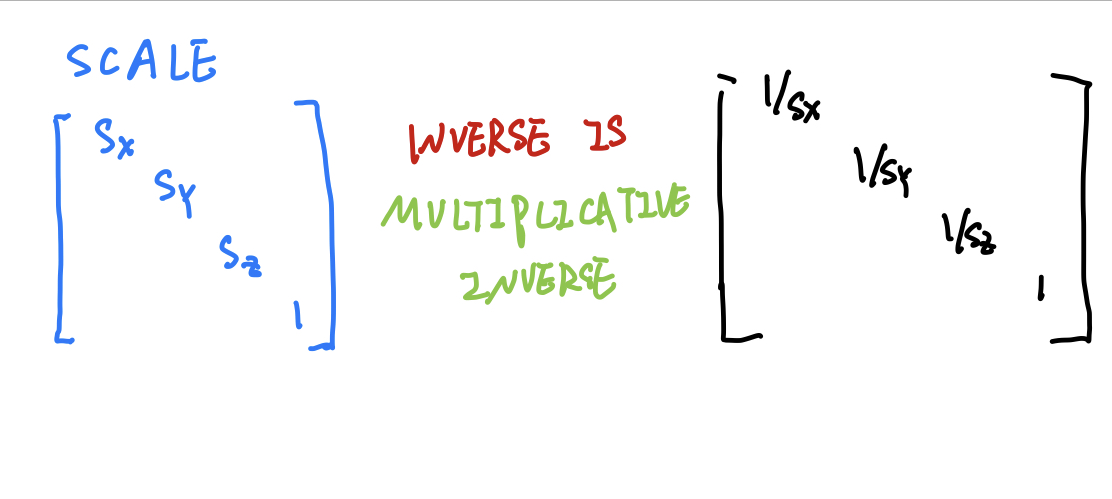 SCALE
Sx
Sy
Sz
1
INVERSE IS
MULTIPLICATIVE
INVERSE
1/Sx
1/Sy
1/Sz
1